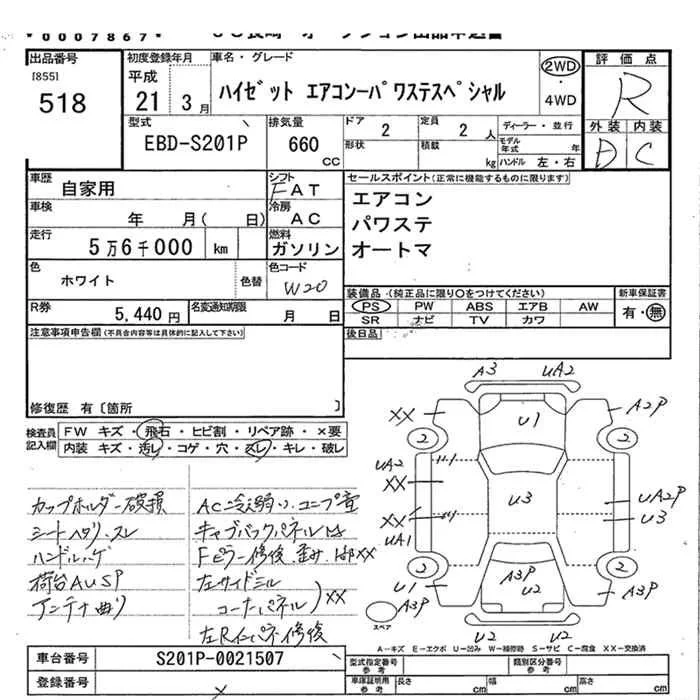 *0007867*
出品番号
[855]
518
初度登録年月
平成
21 3月
車名・グレード
ハイゼット エアコンーパワステスペシャル
2WD
4WD
評価点
R
外装 内装
D C
型式
EBD-S201P
排気量
660
CC
ドア
2
定員
2 人
形状
積載
kg
ディーラー・並行
モデル年式 年
ハンドル 左・右
車歴
自家用
シフト
FAT
車検
年 月( 日)
冷房
AC
走行
5万6千000 km
燃料
ガソリン
色
ホワイト
色替
色コード
W20
R券
5,440 円
名変通知期限
月 日
セールスポイント(正常に機能するものに限ります)
エアコン
パワステ
オートマ
装備品・(純正品に限り○をつけてください)
PS PW ABS エアB AW
SR ナビ TV カワ
新車保証書
有・無
後日品
注意事項申告欄(不具合内容等は具体的に記入して下さい)
修復歴 有〔箇所 〕
検査員記入欄
FW キズ・飛石・ヒビ割・リペア跡・×要
内装 キズ・汚レ・コゲ・穴・スレ・キレ・破レ
カップホルダー破損
シートヘタリ、スレ
ハンドルハゲ
荷台AUSP
アンテナ曲り
AC冷え弱い、コンプ音
キャブバックパネル
Fピラー修後、歪み XX
左サイドシル
コーナーパネル XX
左Rインパネ修後
A3 UA2
XX
U1
A2P
2
2
UA2
XX
XX
UA1
U3
UA2P
U3
2
2
U1
A3P
U2
A3P
A3P
U2 U2
スペア
A－キズ E－エクボ U－凹み W－補修跡 S－サビ C－腐食 XX－交換済
車台番号
S201P-0021507
登録番号
型式指定番号
参考
類別区分番号
参考
車庫証明用
参考
長さ cm
幅 cm
高さ cm